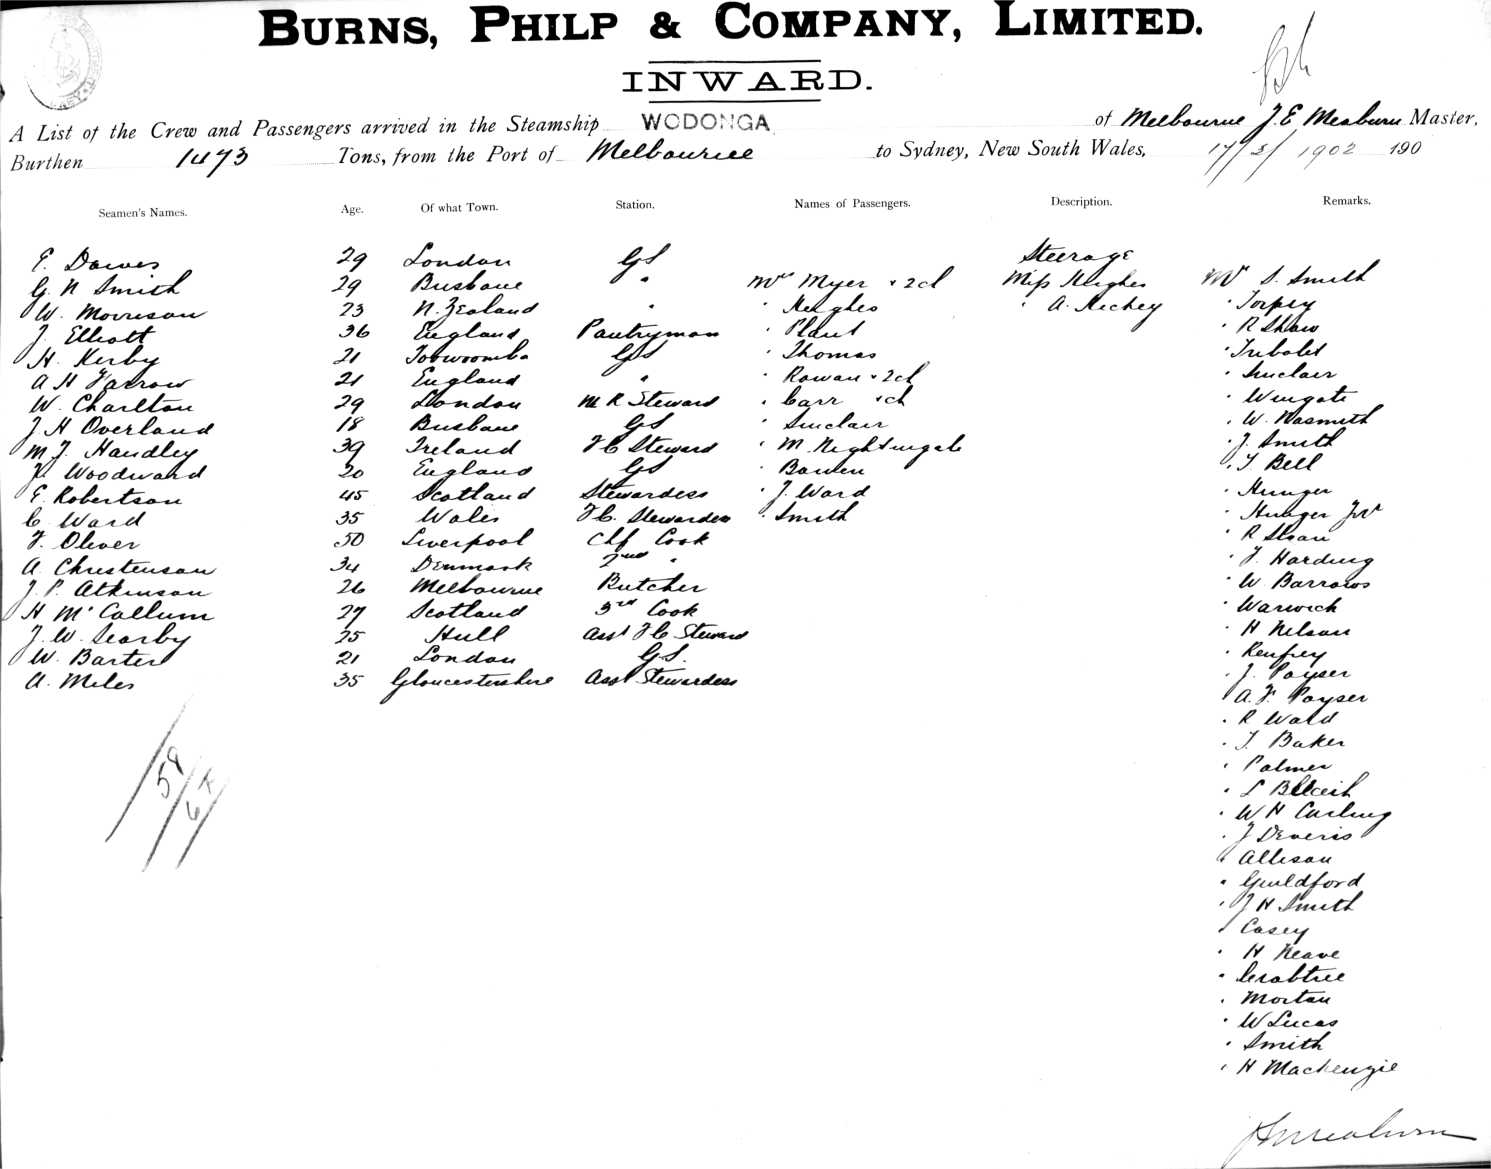 BURNS, PHILP & COMPANY, LIMITED.
INWARD.
A List of the Crew and Passengers arrived in the Steamship WODONGA of Melbourne J. E Meaburn Master,
Burthen 1473 Tons, from the Port of Melbourne to Sydney, New South Wales, 17/3/1902 190
Seamen's Names. Age. Of what Town. Station. Names of Passengers. Description. Remarks.
Steerage
E. Dawes 29 London GS
G. N Smith 29 Brisbane " Mrs Myer + 2ch Miss Hughes Mr S. Smith
W. Morrison 23 N. Zealand " " Hughes " A. Hickey " Torpey
J. Elliott 36 England Pantryman " Plant " R Shaw
H. Kerby 21 Toowoomba GS " Thomas " Tribolet
A H Farrow 21 England " " Rowan + 2ch " Sinclair
W. Charlton 29 London M R Steward " Carr + ch " Wingate
J H Overland 18 Brisbane GS " Sinclair " W. Nasmith
M J. Handley 39 Ireland F C Steward " M Nightingale " J. Smith
Woodward 20 England GS " Bowen " T Bell
E. Robertson 45 Scotland Stewardess " J. Ward " Hunger
C Ward 35 Wales F C. Stewardess " Smith " Hunger Jnr
F. Oliver 50 Liverpool Chf Cook " R Sloan
A. Christenson 34 Denmark 2nd " " F. Harding
J. P. Atkinson 26 Melbourne Butcher " W Barrows
H McCallum 27 Scotland 3rd Cook " Warwick
J. W. Searby 25 Hull Asst F C Steward " H Nelson
W. Barter 21 London G.S. " Renfrey
A. Miles 35 Gloucestershire Asst Stewardess " J. Poyser
" A. F. Poyser
" R Ward
" T. Baker
" Palmer
" L
" W H Carling
" J Deveris
" Allison
" Guildford
" J H Smith
" Casey
" H Neave
" Crabtree
" Morton
" W Lucas
" Smith
" H Mackenzie
58
6
J E Meaburn